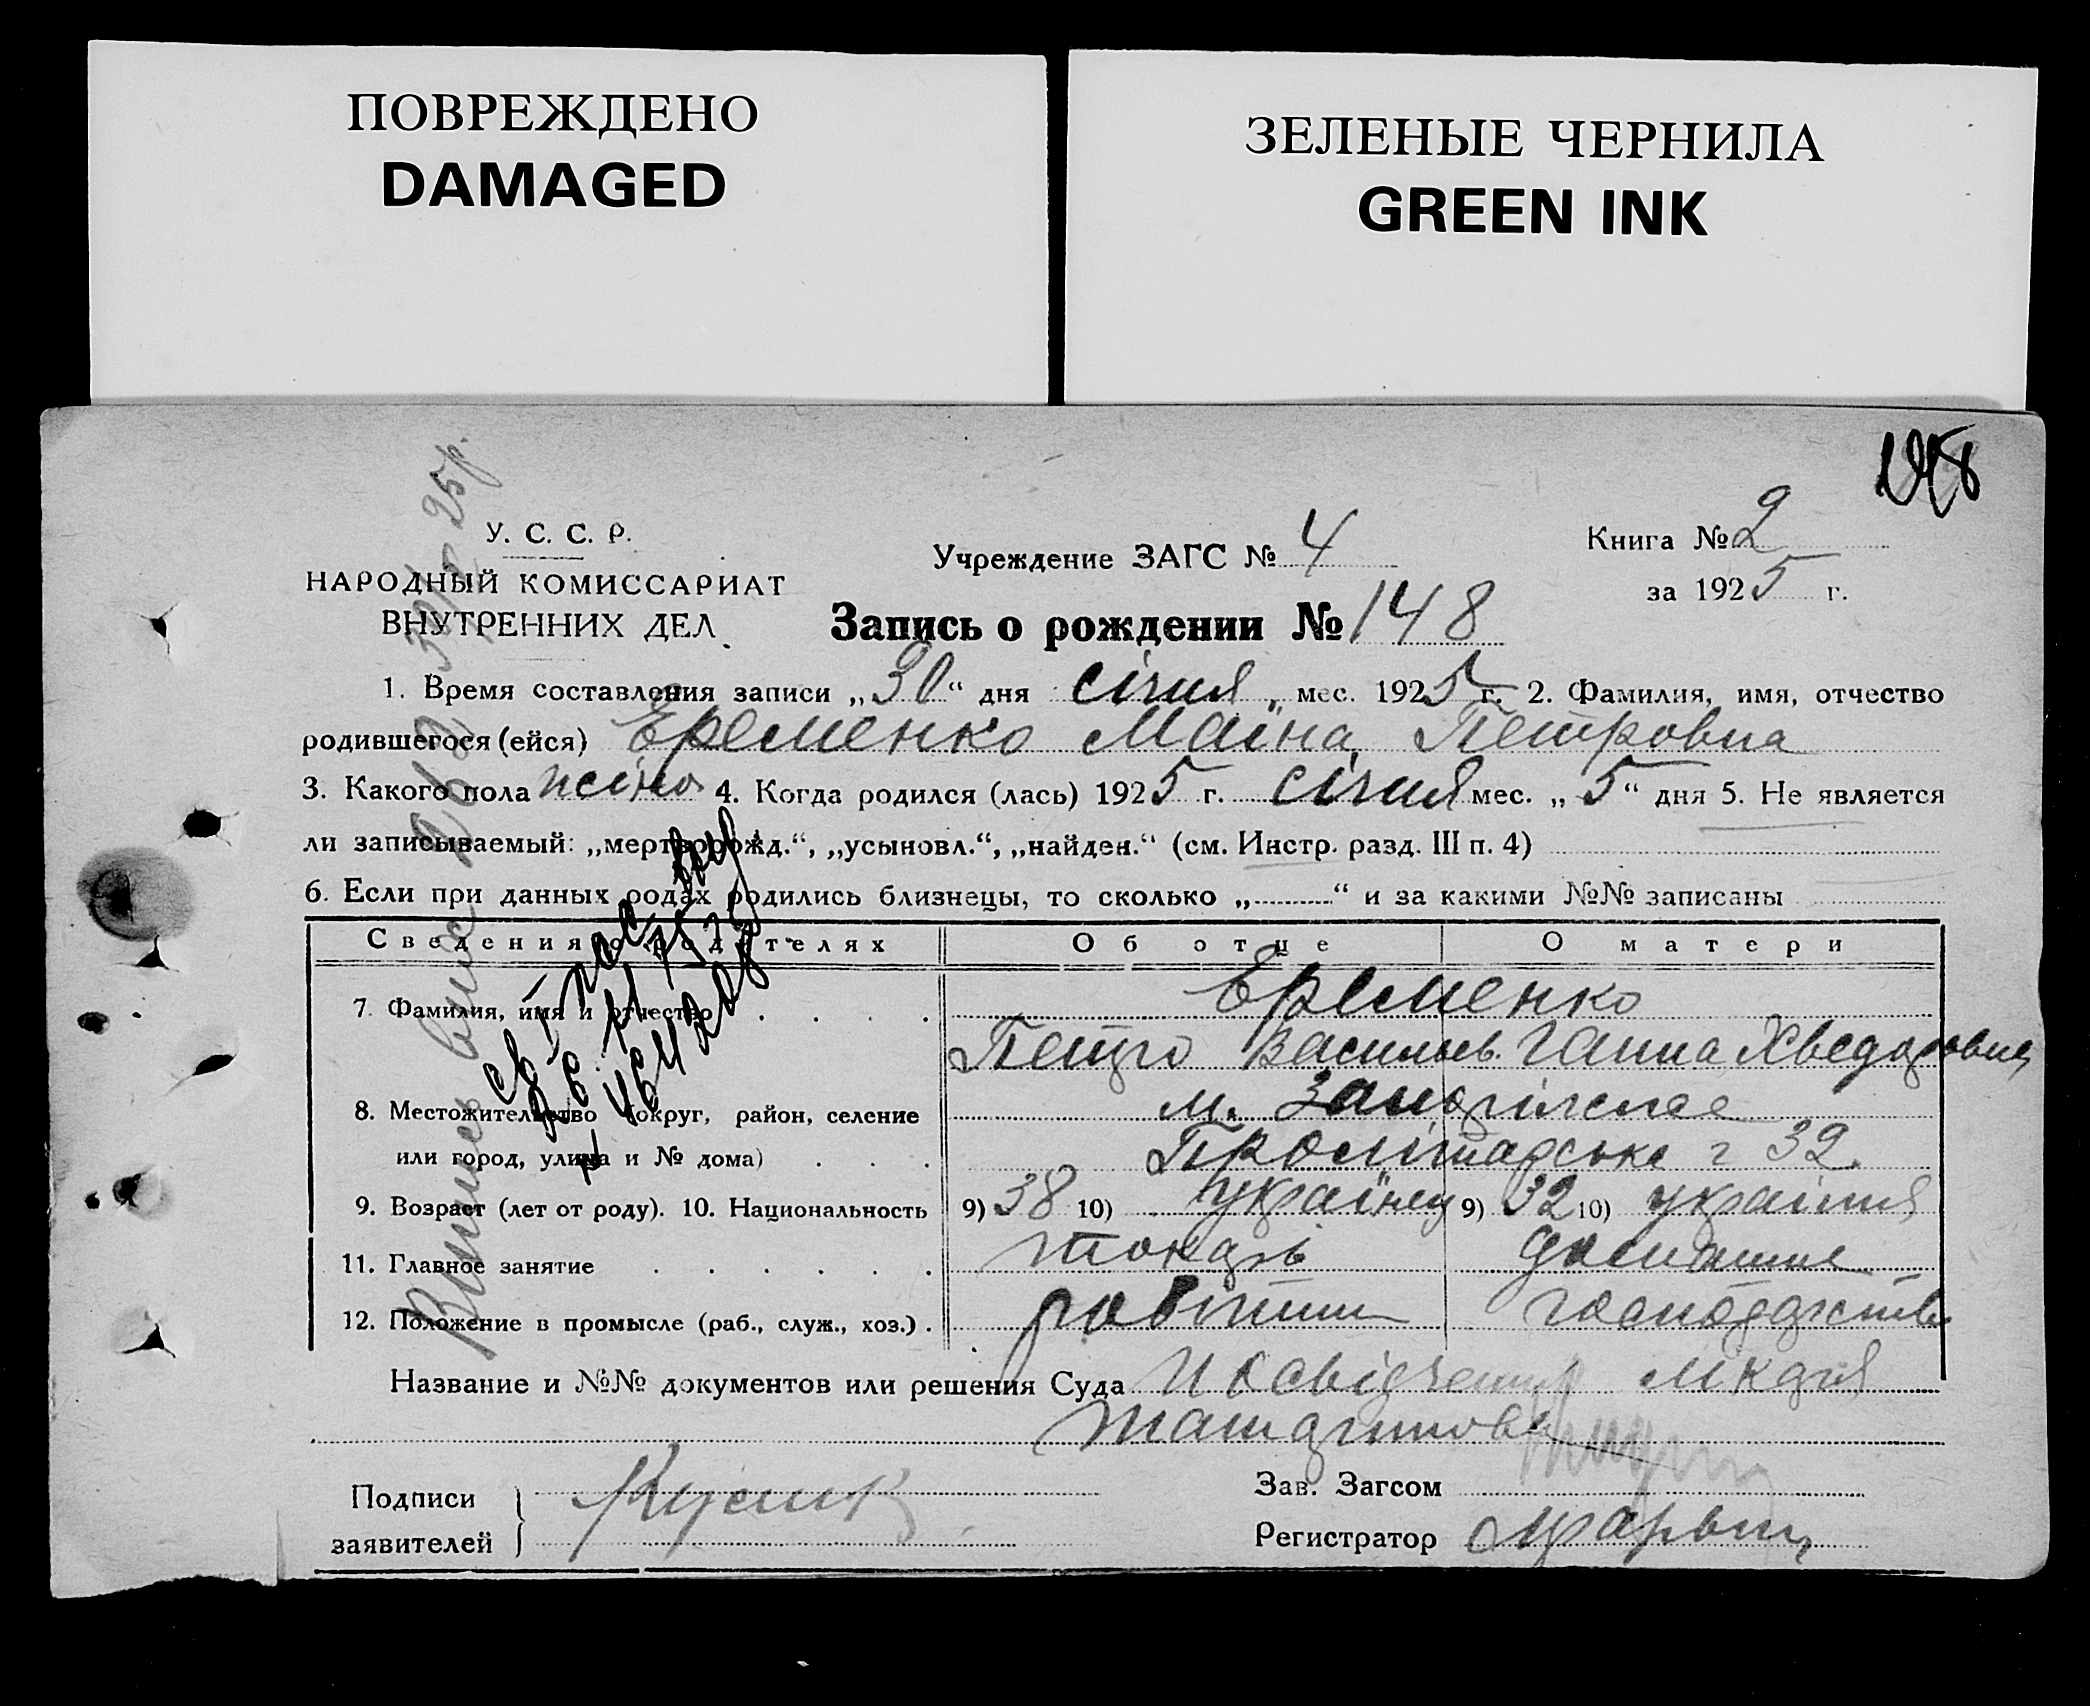 ПОВРЕЖДЕНО
DAMAGED
ЗЕЛЕНЫЕ ЧЕРНИЛА
GREEN INK
У. С. С. Р.
НАРОДНЫЙ КОМИССАРИАТ
ВНУТРЕННИХ ДЕЛ
Учреждение ЗАГС № 4
Книга № 2
за 1925 г.
Запись о рождении № 148
1. Время составления записи „30“ дня січня мес. 1925 г. 2. Фамилия, имя, отчество
родившегося (ейся) Еременко Маіна Петровна
3. Какого пола жіно 4. Когда родился (лась) 1925 г. січня мес. „5“ дня 5. Не является
ли записываемый: „мертворожд.“, „усыновл.“, „найден.“ (см. Инстр. разд. III п. 4)
6. Если при данных родах родились близнецы, то сколько „ “ и за какими №№ записаны
Сведения о родителях Об отце О матери
7. Фамилия, имя и отчество Еременко
Петро Васильев. Ганна Хведоровна
8. Местожительство (округ, район, селение м.
или город, улица и № дома) 32
9. Возраст (лет от роду). 10. Национальность 9) 38 10) українец 9) 32 10)
11. Главное занятие токарь
12. Положение в промысле (раб., служ., хоз.)
Название и №№ документов или решения Суда
Подписи
заявителей
Зав. Загсом
Регистратор